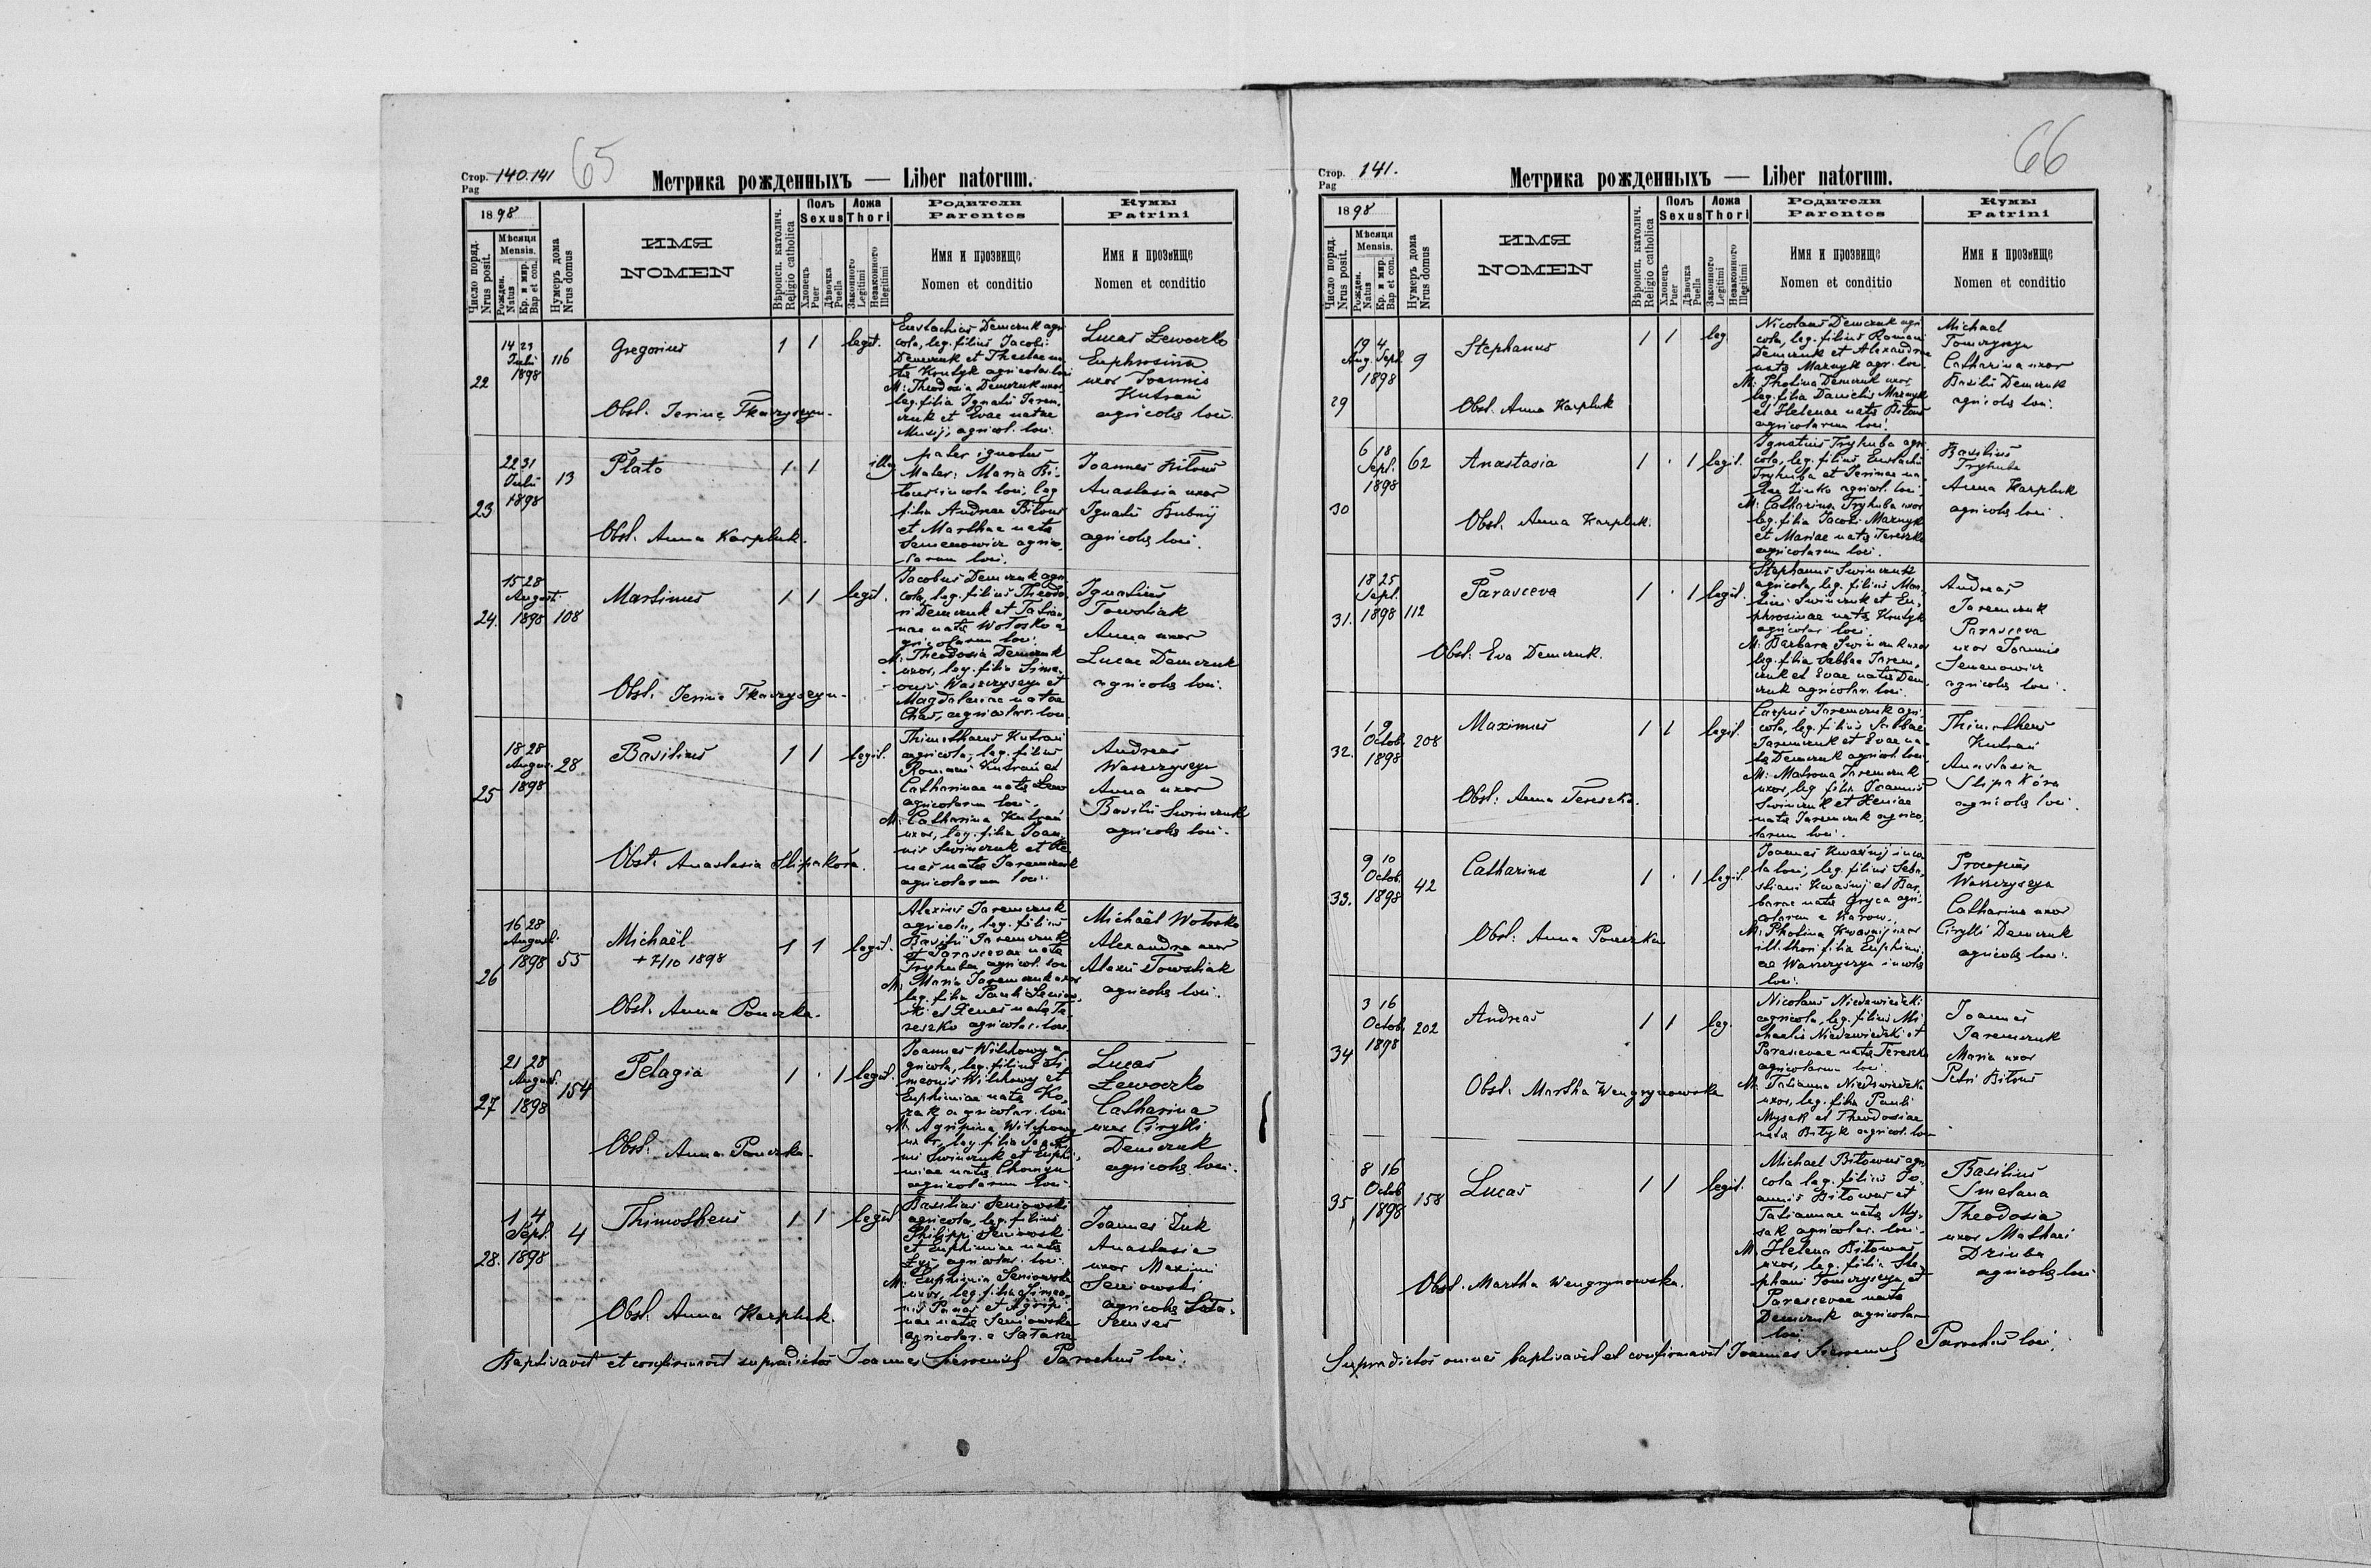 Стор. 140.141
Pag
65
Метрика рожденныхъ — Liber natorum.
1898
Число поряд.
Nrus posit.
Мѣсяця
Mensis.
Рожден.
Natus
Кр. и мир.
Bap et con.
Нумеръ дома
Nrus domus
ИМЯ
NOMEN
Вѣроисп. католич.
Religio catholica
Полъ
Sexus
Хлопецъ
Puer
Дѣвочка
Puella
Ложа
Thori
Законного
Legitimi
Незаконного
Illegitimi
Родители
Parentes
Имя и прозвище
Nomen et conditio
Кумы
Patrini
Имя и прозвище
Nomen et conditio
22
14 29
Julii
1898
116
Gregorius
1 1 legit.
Obst. Irina Tkaczyszyn.
Eustachius Demczuk agri
cola, leg. filius Jacobi
Demczuk et Theclae na
tae Krutyk agricolar. loci
M: Theodosia Demczuk uxor
leg. filia Ignatii Jarem,
czuk et Evae natae
agricol. loci
Lucas Lewoczko
Euphrosina
uxor Joannis
Kutrań
agricolae loci.
23
22 31
Julii
1898
13
Plato
1 1 illeg
Obst. Anna Karpluk.
pater ignotus
Mater: Maria Bi-
tous incola loci, leg
filia Andreae Bitous
et Marthae natae
Semenowicz agrico,
larum loci.
Joannes Bitous
Anastasia uxor
Ignatii Hubnij
agricolae loci.
24.
15 28
August.
1898
108
Martinus
1 1 legit.
Obst. Irina Tkaczyszyn.
Jacobus Demczuk agri
cola, leg. filius Theodo
ri Demczuk et Tatian,
nae natae Wołosko a
gricolarum loci.
M. Theodosia Demczuk
uxor, leg. filia Sime,
onis Waszczyszyn et
Magdalenae natae
agricolar. loci
Ignatius
Towstiak
Anna uxor
Lucae Demczuk
agricolae loci.
25
18 28
August.
1898
28
Basilius
1 1 legit.
Obst. Anastasia Slipakora.
Thimotheus Kutrań
agricola, leg. filius
Romani Kutrań et
Catharinae natae Lew
agricolarum loci.
M: Catharina Kutrań
uxor, leg. filia Joan,
nis Swinczuk et Xe
niae natae Jaremczuk
agricolarum loci.
Andreas
Waszczyszyn
Anna uxor
Basilii Swinczuk
agricolae loci.
26
16 28
August.
1898
55
Michaël
+ 7/10 1898
1 1 legit.
Obst. Anna Ponczka.
Alexius Jaremczuk
agricola, leg. filius
Basilii Jaremczuk
et Parascevae natae
Tryhuba agricol. loci
M: Maria Jaremczuk uxor
leg. filia Pauli Seniow,
ski et Xeniae natae Te,
reszko agricolar. loci
Michaël Wołosko
Alexandra uxor
Alexii Towstiak
agricolae loci.
27
21 28
August.
1898
154
Pelagia
1 . 1 legit.
Obst. Anna Ponczka.
Joannes Wilchowy a
gricola, leg. filius Si
meonis Wilchowy et
Euphimiae natae Ko,
zak agricolar. loci
M. Agripina Wilchowy
uxor, leg. filia
Swinczuk et Euphi,
miae natae Chomyn
agricolarum loci.
Lucas
Lewoczko
Catharina
uxor Cirylli
Demczuk
agricolae loci.
28.
1 4
Sept.
1898
4
Thimotheus
1 1 legit
Obst. Anna Karpluk.
Basilius Seniowski
agricola, leg. filius
Philippi Seniowski
et Euphimiae natae
agricolar. loci.
M: Euphimia Seniowska
uxor, leg. filia Simeo,
nis Panas et Agripi,
nae natae Seniowska
agricolar. e Sałasze
Joannes Zuk
Anastasia
uxor Maximi
Seniowski
agricolae
Baptisavit et confirmavit supradictos Joannes Parochus loci.
Стор. 141.
Pag
66
Метрика рожденныхъ — Liber natorum.
1898
Число поряд.
Nrus posit.
Мѣсяця
Mensis.
Рожден.
Natus
Кр. и мир.
Bap et con.
Нумеръ дома
Nrus domus
ИМЯ
NOMEN
Вѣроисп. католич.
Religio catholica
Полъ
Sexus
Хлопецъ
Puer
Дѣвочка
Puella
Ложа
Thori
Законного
Legitimi
Незаконного
Illegitimi
Родители
Parentes
Имя и прозвище
Nomen et conditio
Кумы
Patrini
Имя и прозвище
Nomen et conditio
29
19 4
Aug. Sept.
1898
9
Stephanus
1 1 leg.
Obst. Anna Karpluk
Nicolaus Demczuk agri
cola, leg. filius Romani
Demczuk et Alexandrae
natae Maznyk agr. loci.
M: Photina Demczuk uxor
leg. filia Danielis Maznyk
et Helenae natae Bitous
agricolarum loci.
Michael
Tomczyszyn
Catharina uxor
Basilii Demczuk
agricolae loci.
30
6 18
Sept.
1898
62
Anastasia
1 . 1 legit.
Obst. Anna Karpluk.
Ignatius Tryhuba agri
cola, leg. filius Eustachii
Tryhuba et Irinae na
tae Zinko agricol. loci,
M: Catharina Tryhuba uxor
leg. filia Jacobi Maznyk
et Mariae natae Tereszko
agricolarum loci.
Basilius
Tryhuba
Anna Karpluk
agricolae loci.
31.
18 25
Sept.
1898
112
Parasceva
1 . 1 legit.
Obst: Eva Demczuk.
Stephanus Swinczuk
agricola, leg. filius Mar,
tini Swinczuk et Eu,
phrosinae natae Krutyk
agricolar. loci
M: Barbara Swinczuk uxor
leg. filia Sabbae Jarem,
czuk et Evae natae Dem,
czuk agricolar. loci.
Andreas
Jaremczuk
Parasceva
uxor Joannis
Semenowicz
agricolae loci.
32.
1 9
Octob.
1898
208
Maximus
1 1 legit.
Obst: Anna Tereszko.
Carpus Jaremczuk agri
cola, leg. filius Sabbae
Jaremczuk et Evae na
tae Demczuk agricol. loci.
M: Matrona Jaremczuk
uxor, leg. filia Joannis
Swinczuk et Xeniae
natae Jaremczuk agrico,
larum loci.
Thimotheus
Kutrań
Anastasia
Slipakóra
agricolae loci.
33.
9 10
Octob.
1898
42
Catharina
1 . 1 legit.
Obst: Anna Ponczka
Joannes Kwaśnij inco
la loci, leg. filius Seba,
stiani Kwaśnij et Bar,
barae natae Gryca agri,
colarum e Karow.
M: Photina Kwaśnij uxor
ill. thori filia Euphimi,
ae Waszczyszyn incolae
loci.
Procopius
Waszczyszyn
Catharina uxor
Cirylli Demczuk
agricolae loci.
34
3 16
Octob.
1898
202
Andreas
1 1 leg.
Obst. Martha Wengrynowska
Nicolaus Niedzwiedzki
agricola, leg. filius Mi
chaelis Niedzwiedzki et
Parascevae natae Tereszko
agricolarum loci
M: Tatianna Niedzwiedzka
uxor, leg. filia Pauli
Mysak et Theodosiae
natae Bityk agricol. loci
Joannes
Jaremczuk
Maria uxor
Petri Bitous
35
8 16
Octob
1898
158
Lucas
1 1 legit.
Obst. Martha Wengrynowska.
Michael Bitowus agri
cola leg. filius Jo,
annis Bitowus et
Tatiannae natae My,
sak agricolar. loci.
M. Helena Bitowus
uxor, leg. filia Ste,
phani Tomczyszyn et
Parascevae natae
Demczuk agricolar
loci.
Basilius
Smetana
Theodosia
uxor Mathaei
Dziuba
agricolae loci
Supradictos omnes baptisavit et confirmavit Joannes Parochus loci.